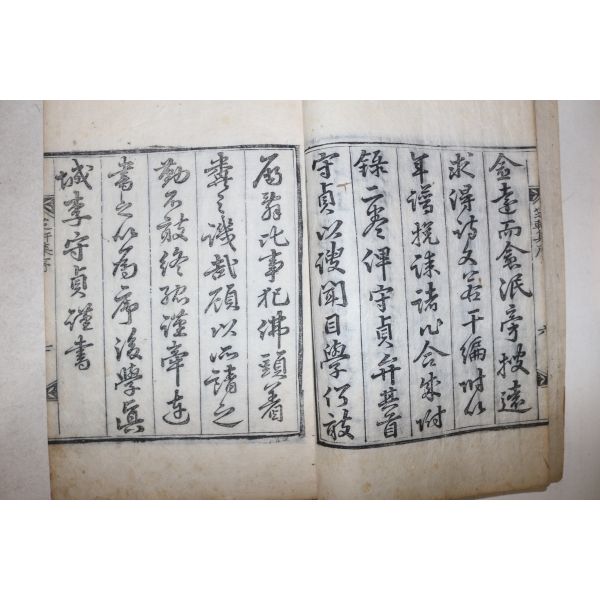 金遠而愈泯旁搜遠
求得詩文若干編附以
年譜挽誄諸作合成附
錄二卷俾守貞弁其首
守貞以謏聞目學何敢
爲玆比事犯佛頭着
糞之譏哉顧以所請之
勤不敢終孤謹牽連
書之以爲序後學眞
城李守貞謹書